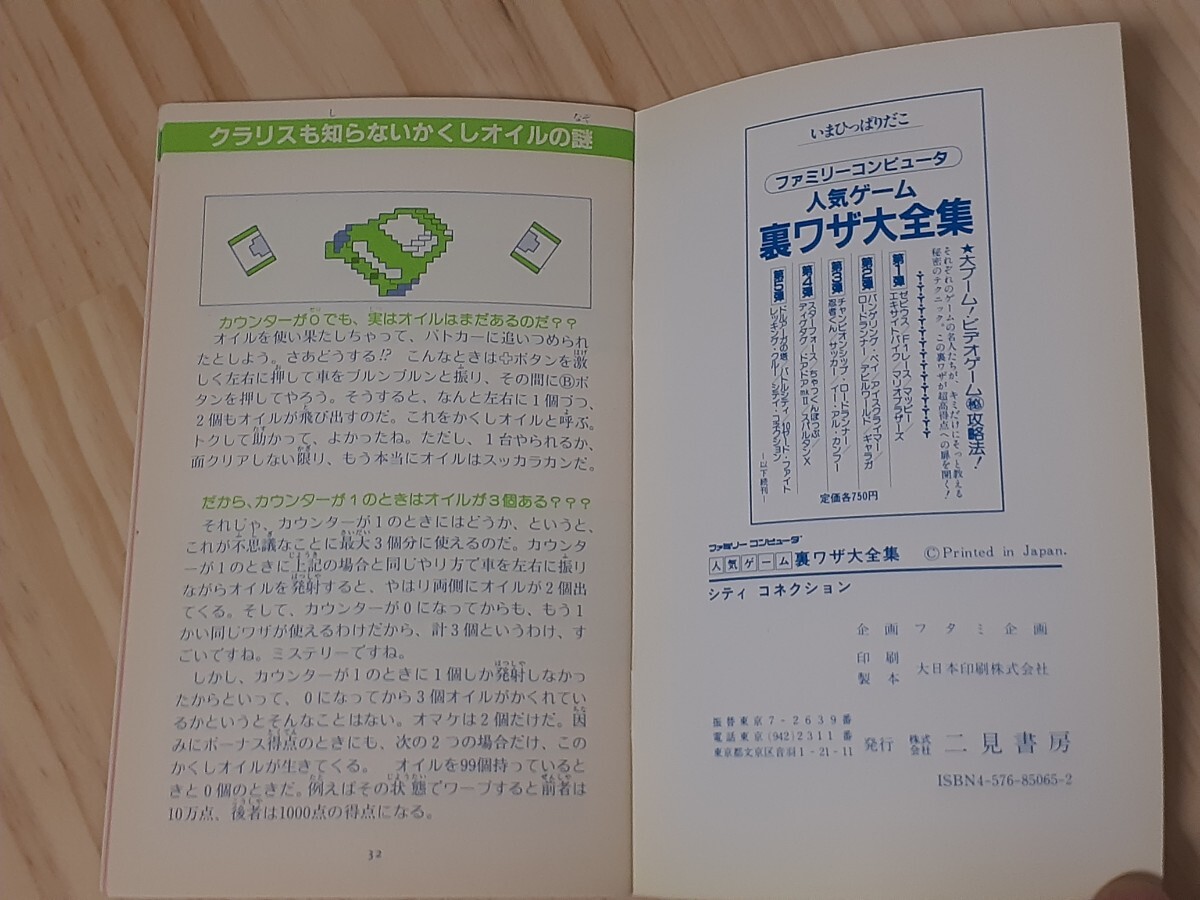 クラリスも知らないかくしオイルの謎
カウンターが0でも、実はオイルはまだあるのだ??
オイルを使い果たしちゃって、パトカーに追いつめられ
たとしよう。さあどうする!? こんなときは✛ボタンを激
しく左右に押して車をブルンブルンと振り、その間にⒷボ
タンを押してやろう。そうすると、なんと左右に1個づつ、
2個もオイルが飛び出すのだ。これをかくしオイルと呼ぶ。
トクして助かって、よかったね。ただし、1台やられるか、
面クリアしない限り、もう本当にオイルはスッカラカンだ。
だから、カウンターが1のときはオイルが3個ある???
それじゃ、カウンターが1のときにはどうか、というと、
これが不思議なことに最大3個分に使えるのだ。カウンタ
ーが1のときに上記の場合と同じやり方で車を左右に振り
ながらオイルを発射すると、やはり両側にオイルが2個出
てくる。そして、カウンターが0になってからも、もう1
かい同じワザが使えるわけだから、計3個というわけ、す
ごいですね。ミステリーですね。
しかし、カウンターが1のときに1個しか発射しなかっ
たからといって、0になってから3個オイルがかくれてい
るかというとそんなことはない。オマケは2個だけだ。因
みにボーナス得点のときにも、次の2つの場合だけ、この
かくしオイルが生きてくる。 オイルを99個持っていると
きと0個のときだ。例えばその状態でワープすると前者は
10万点、後者は1000点の得点になる。
32
いまひっぱりだこ
ファミリーコンピュータ
人気ゲーム
裏ワザ大全集
★大ブーム!ビデオゲーム㊙攻略法!
それぞれのゲームの名人たちが、キミだけにそっと教える
秘密のテクニック。この裏ワザが超高得点への扉を開く!
第1弾
ゼビウス/F1レース/マッピー/
エキサイトバイク/マリオブラザーズ
第2弾
バンゲリング・ベイ/アイスクライマー/
ロードランナー/デビルワールド/ギャラガ
第3弾
チャンピオンシップ・ロードランナー/
忍者くん/サッカー/イー・アル・カンフー
第4弾
スターフォース/ちゃっくんぽっぷ/
ディグダグ/ドアドアmkⅡ/スパルタンX
第5弾
ドルアーガの塔/バトルシティ/10ヤード・ファイト
レッキング・クルー/シティ・コネクション
―以下続刊―
定価各750円
ファミリーコンピュータ
人気ゲーム裏ワザ大全集 ©Printed in Japan.
シティ コネクション
企画 フタミ企画
印刷
製本 大日本印刷株式会社
振替東京7-2639番
電話東京(942)2311番
東京都文京区音羽1-21-11
発行 株式会社 二見書房
ISBN4-576-85065-2